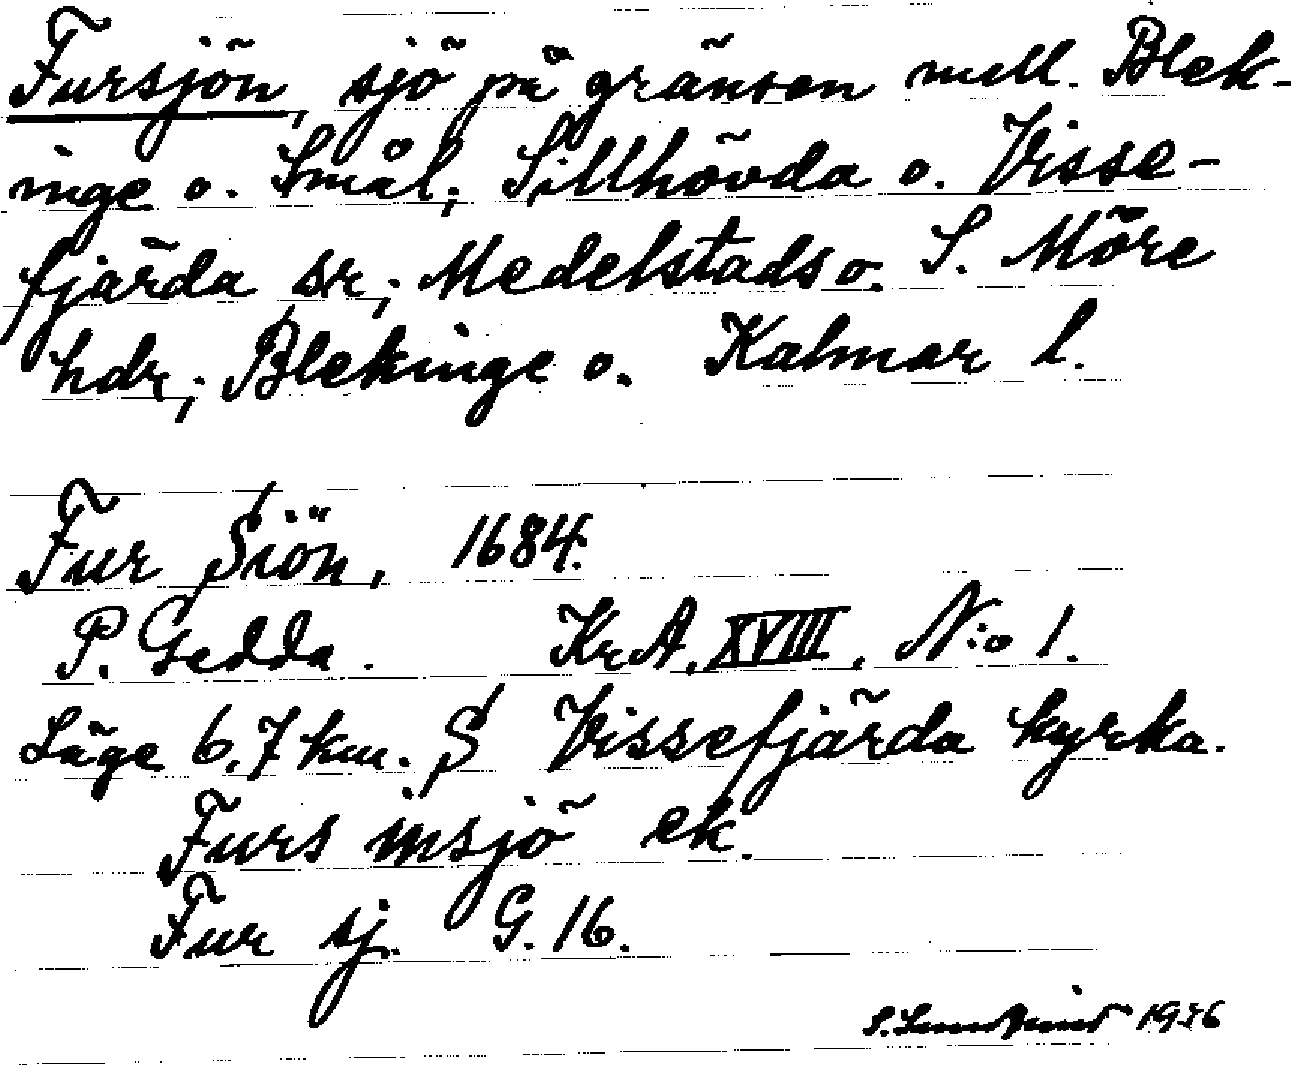 Fursjön, sjö på gränsen mell. Blek-
inge o. Smål; Sillhövda o. Visse-
fjärda sr; Medelstads o. S. Möre
hdr; Blekinge o. Kalmar l.
Fur Siön, 1684.
P. Gedda. KrA, XVIII, N:o 1.
Läge 6,7 km. S Vissefjärda kyrka.
Furs insjö ek.
Fur sj. G. 16.
S. 1956